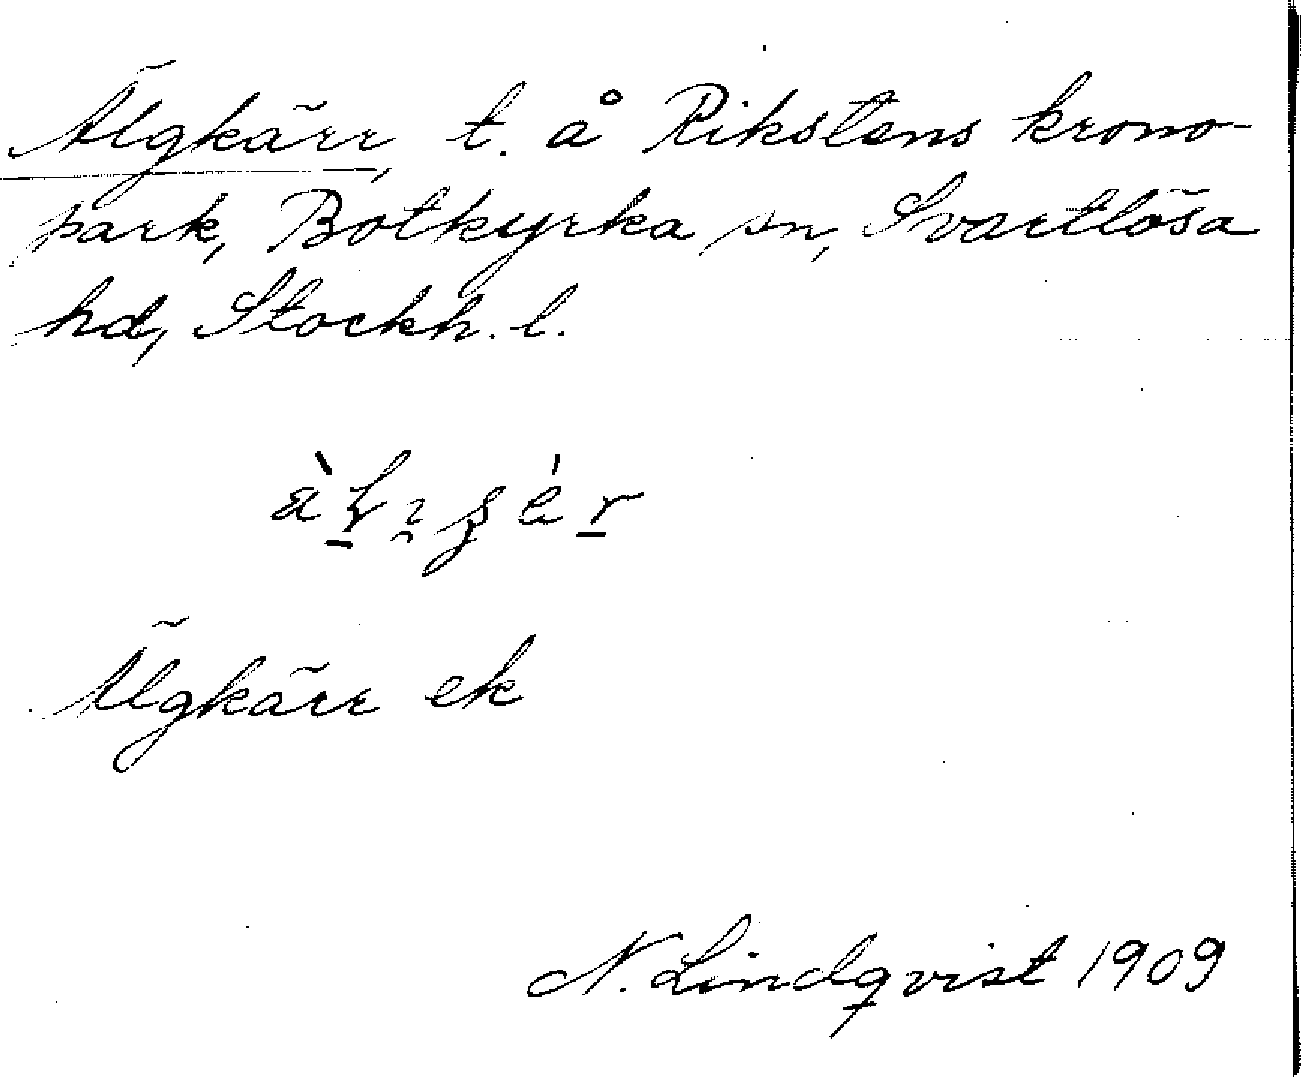 Älgkärr, t. å Rikstens krono-
park, Botkyrka sn, Svartlösa
hd, Stockh. l.
Älgkärr ek
N. Lindqvist 1909